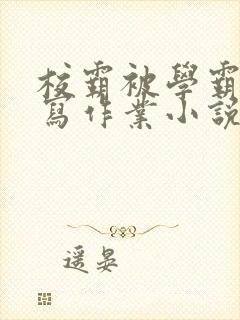 校霸被學霸
寫作業小說
遥晏